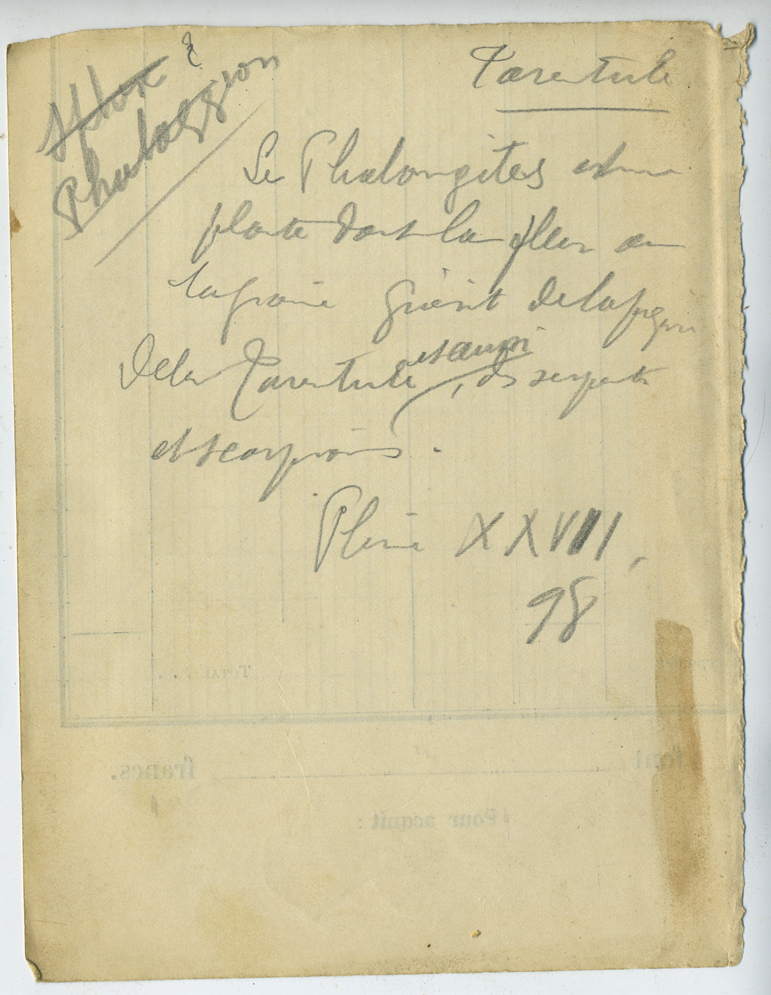 &
Phalaggion
Tarentule
Le Phalongites est une
plante dont la fleur ou
la graine guérit de la piqûre
de la Tarentule et aussi, des serpents
et scorpions.
Pline XXVIII,
98
TOTAL . . .
font
francs.
Pour acquit :